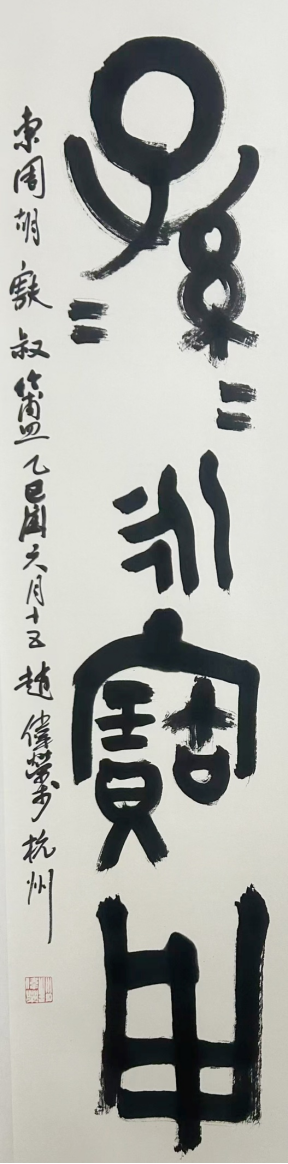 子=孫=永寶用
東周胡㝬叔簠乙巳閏六月十五趙偉杭州